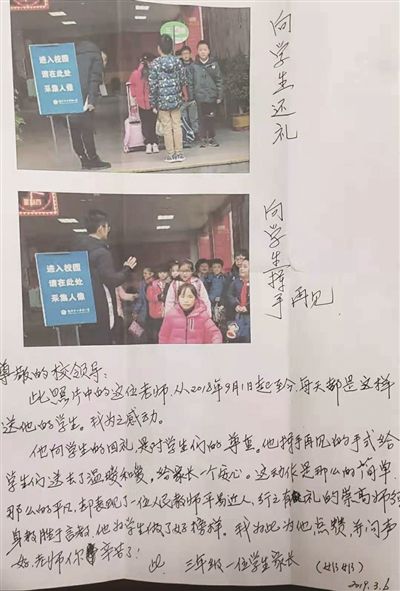 进入校园
请在此处
采集人像
向学生还礼
进入校园
请在此处
采集人像
向学生挥手再见
尊敬的校领导:
此照片中的这位老师,从2018年9月1日起至今,每天都是这样
送他的学生。我为之感动。
他向学生的回礼是对学生们的尊重。他挥手再见的手式给
学生们送去了温暖和爱,给家长一个放心。这动作是那么的简单
那么的平凡,却表现了一位人民教师平易近人,行之有礼的崇高师德
身教胜于言教,他为学生做了好榜样。我为此为他点赞,并问声
好老师你辛苦了!
此. 三年级一位学生家长
2019.3.6